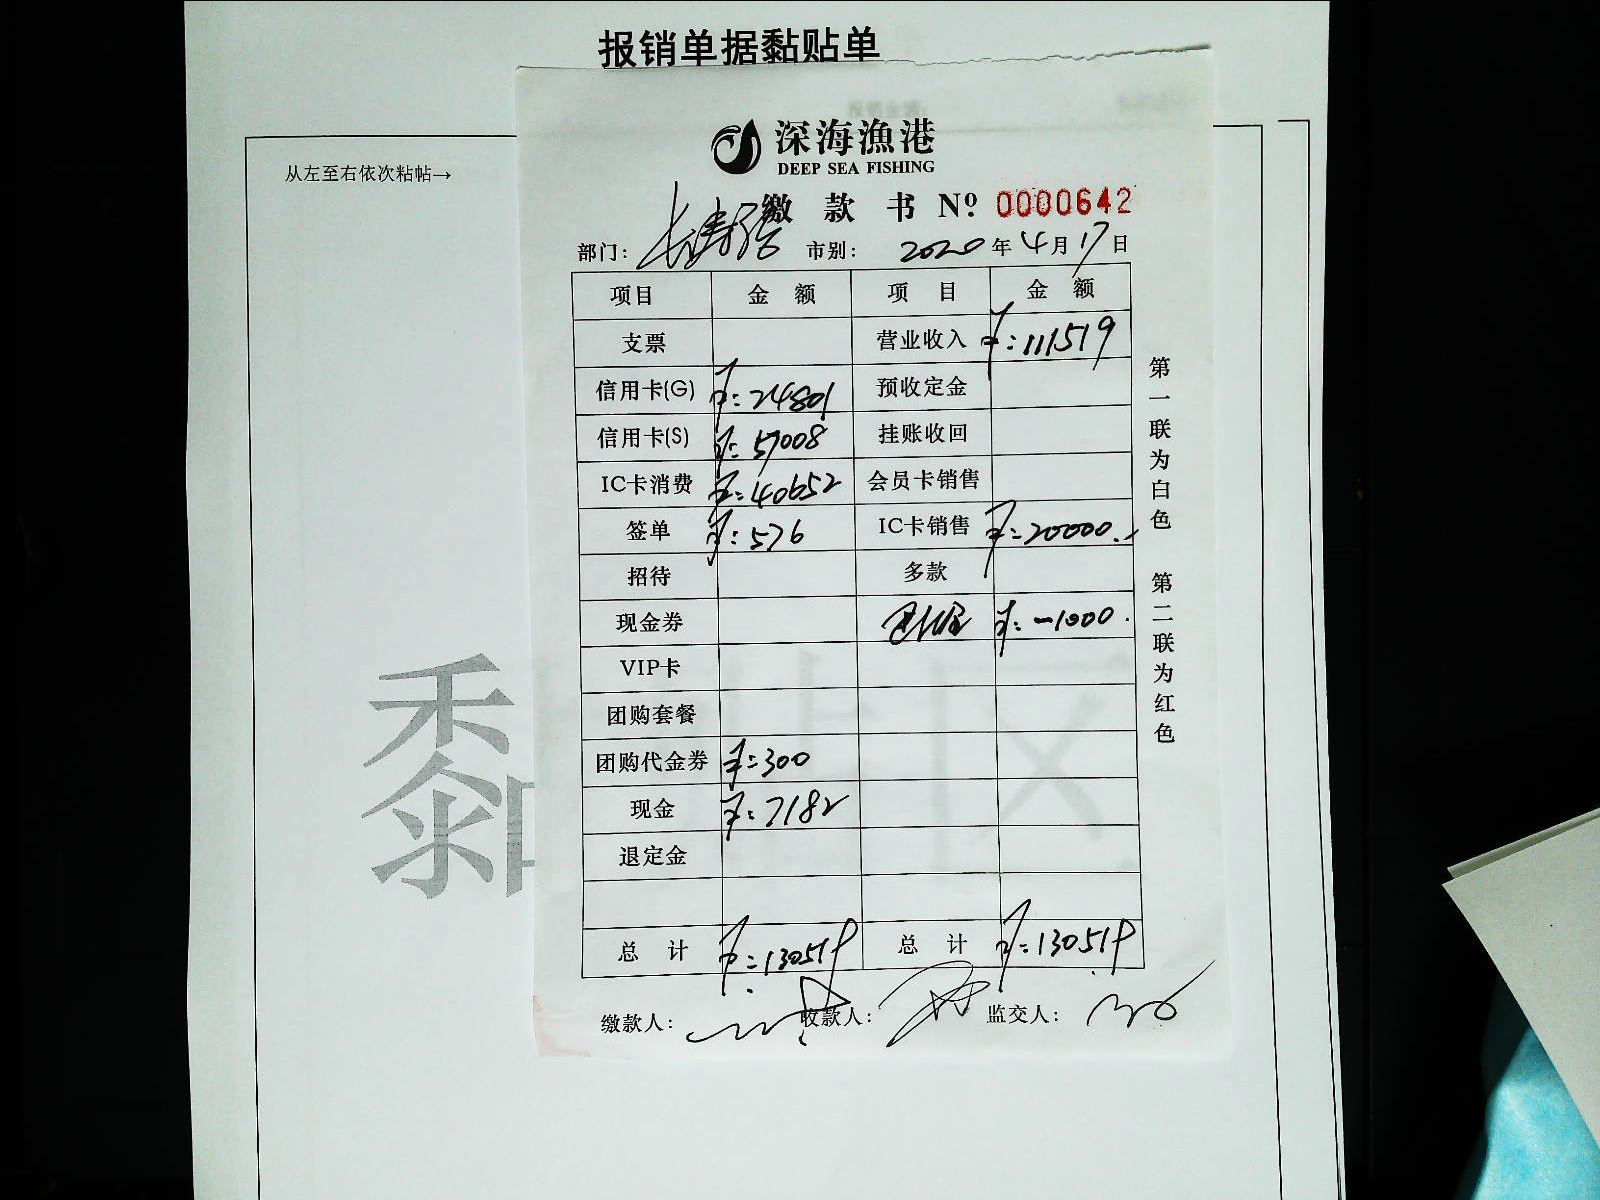 报销单据黏贴单
从左至右依次粘帖→
深海渔港
DEEP SEA FISHING
缴款书 Nº 0000642
部门：长寿路 市别： 2020年4月17日
项目 金额 项目 金额
支票 营业收入 ￥：111519
信用卡(G) ￥：24801 预收定金
信用卡(S) ￥：57008 挂账收回
IC卡消费 ￥：40652 会员卡销售
签单 ￥：576 IC卡销售 ￥：20000.-
招待 多款
现金券 ￥：-1000.
VIP卡
团购套餐
团购代金券 ￥：300
现金 ￥：7182
退定金
总计 ￥：130519 总计 ￥：130519
缴款人： 收款人： 监交人：
第一联为白色 第二联为红色
黏